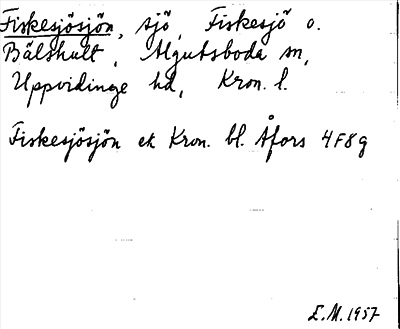 Fiskesjösjön, sjö, Fiskesjö o.
Bälshult, Algutsboda sn,
Uppvidinge hd, Kron. l.
Fiskesjösjön ek Kron. bl. Åfors 4F8g
E.M. 1957